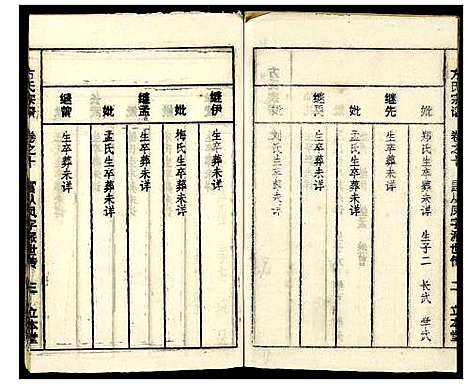 方氏宗谱 卷之十 富从凤字派世传 二 立本堂
妣 郑氏生卒葬未详 生子二 长武
继先 生卒葬未详
妣
继禹 生卒葬未详
妣 刘氏生卒葬未详
继伊 生卒葬未详
妣 梅氏生卒葬未详
继孟 生卒葬未详
妣 孟氏生卒葬未详
继曾 生卒葬未详
方氏宗谱 卷之十 富从凤字派世传 三 立本堂